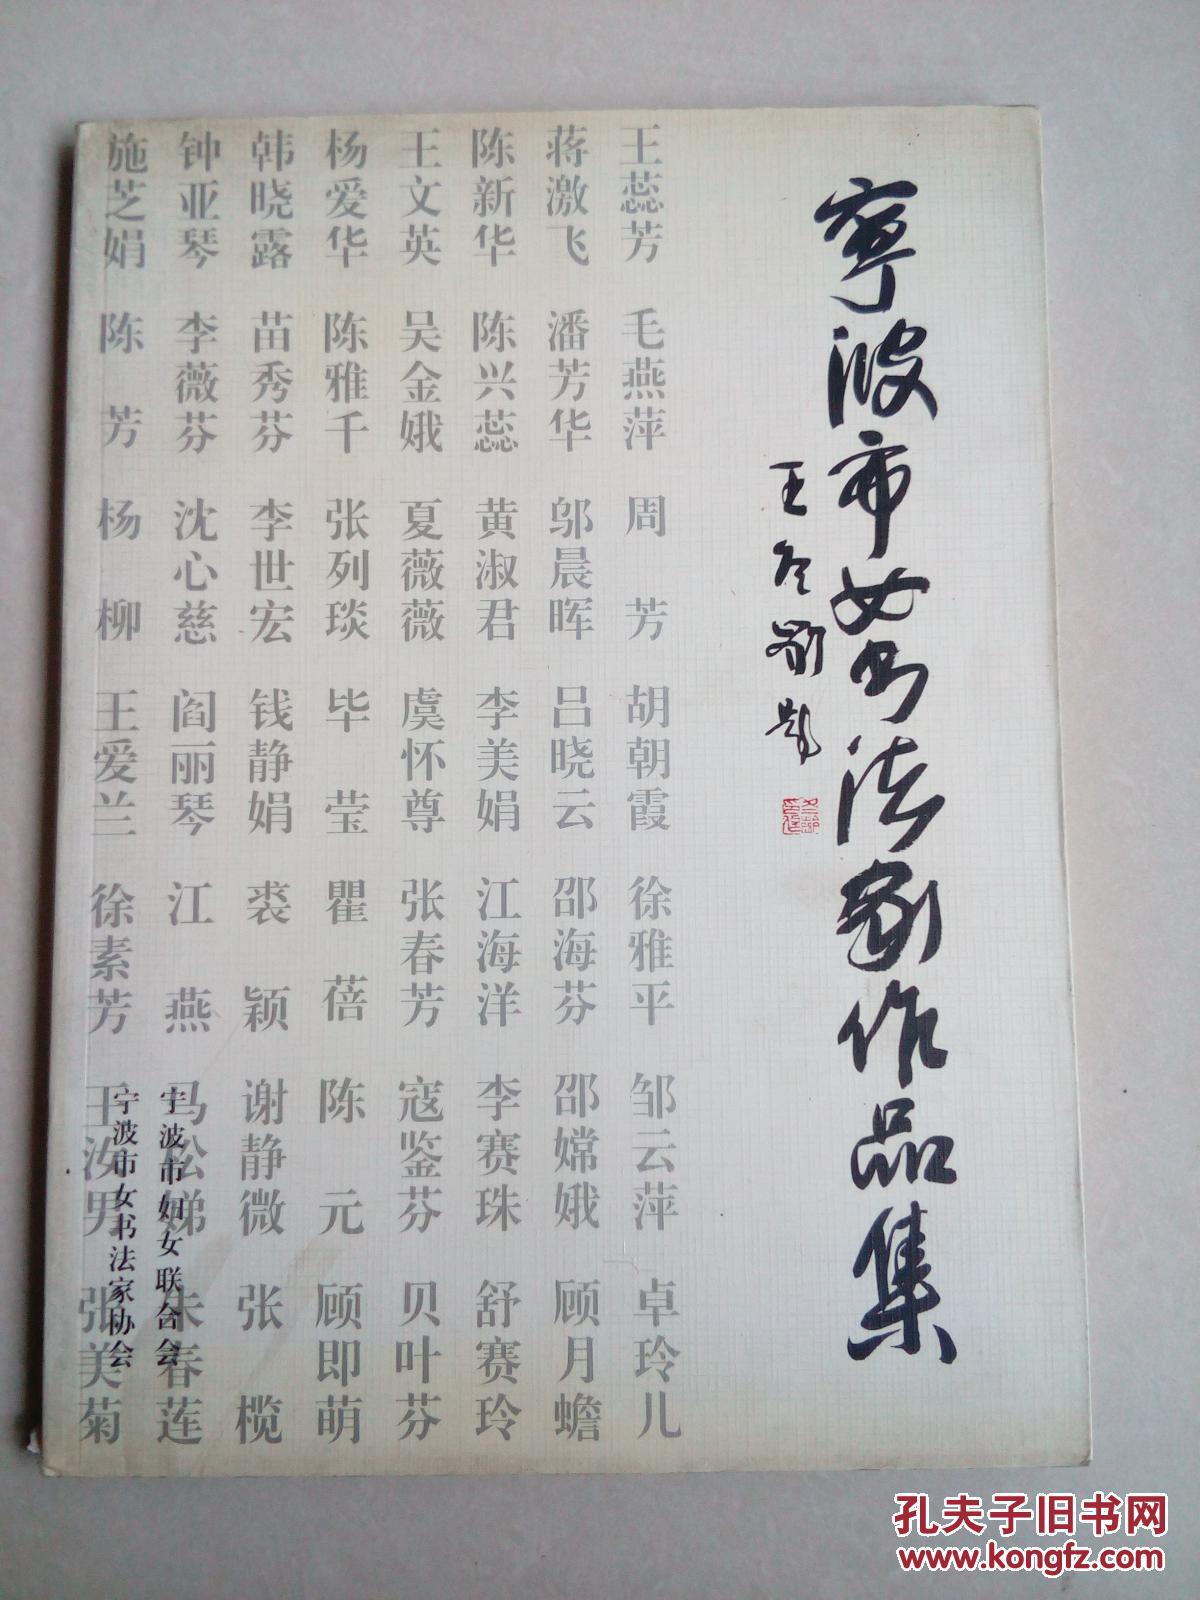 寧波市女书法家作品集
王冬齡题
王蕊芳 毛燕萍 周芳 胡朝霞 徐雅平 邹云萍 卓玲儿
蒋激飞 潘芳华 邬晨晖 吕晓云 邵海芬 邵嫦娥 顾月蟾
陈新华 陈兴蕊 黄淑君 李美娟 江海洋 李赛珠 舒赛玲
王文英 吴金娥 夏薇薇 虞怀尊 张春芳 寇鉴芬 贝叶芬
杨爱华 陈雅千 张列琰 毕莹 瞿蓓 陈元 顾即萌
韩晓露 苗秀芬 李世宏 钱静娟 裘颖 谢静微 张榄
钟亚琴 李薇芬 沈心慈 阎丽琴 江燕 马松娣 朱春莲
施芝娟 陈芳 杨柳 王爱兰 徐素芳 王汝男 张美菊
宁波市妇女联合会
宁波市女书法家协会
孔夫子旧书网
www.kongfz.com